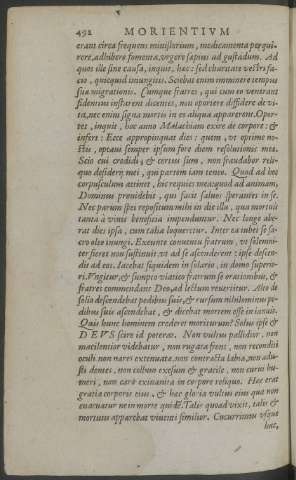 492 MORIENTIVM
erant circa frequens ministerium, medicamenta perqui-
rere, adhibere fomenta, vrgere sæpius ad gustadum. Ad
quos ille sine causa, inquit, hæc: sed charitate vestri fa-
cio, quicquid iniungitis. Sciebat enim imminere tempus
suæ migrationis. Cumque fratres, qui cum eo venerant
fidentius insisterent dicentes, non oportere diffidere de vi-
ta, nec enim signa mortis in eo aliqua apparere. Opor-
tet, inquit, hoc anno Malachiam exire de corpore: &
infert: Ecce appropinquat dies: quem, vt optime no-
stis, optaui semper ipsum fore diem resolutionis meæ.
Scio cui credidi, & certus sum, non fraudabor reli-
quo desiderij mei, qui partem iam teneo. Quod ad hoc
corpusculum attinet, hic requies mea: quod ad animam,
Dominus prouidebit, qui facit saluos sperantes in se.
Nec parum spei repositum mihi in die illa, qua mortuis
tanta à viuis beneficia impenduntur. Nec longe abe-
rat dies ipsa, cum talia loqueretur. Inter ea iubet se sa-
cro oleo inungi. Exeunte conuentu fratrum, vt solemni-
ter fieret non sustinuit, vt ad se ascenderent: ipse descen-
dit ad eos. Iacebat siquidem in solario, in domo superio-
ri. Vngitur, & sumpto viatico fratrum se orationibus, &
fratres commendans Deo, ad lectum reuertitur. Alto de
solio descendebat pedibus suis, & rursum nihilominus pe-
dibus suis ascendebat, & dicebat mortem esse in ianuis.
Quis hunc hominem crederet moriturum? Solus ipse &
DEVS scire id poterat. Non vultus pallidior, non
macilentior videbatur, non rugata frons, non reconditi
oculi non nares extenuatæ, non contracta labia, non adu-
sti dentes, non collum exesum & gracile, non curui hu-
meri, non caro eximanita in corpore reliquo. Hæc erat
gratia corporis eius, & hæc gloria vultus eius quæ non
euacuatur ne in morte quidē. Talis quoad vixit, talis &
mortuus apparebat viuenti similior. Cucurrimus vsque
hac,